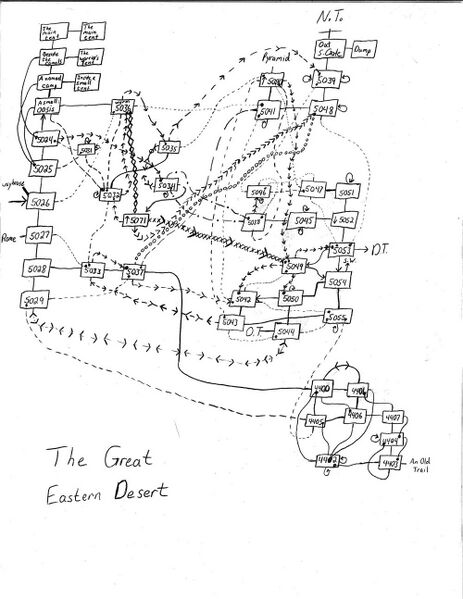 N.T.
The main tent
The main tent
Out S. Gate
Dump
Beside the camels
Inside a small tent
A nomad camp
Pyramid
5039
A small oasis
5036
5041
5048
5024
5031
5035
5025
5034
5046
5047
5051
5026
5032
5071
5045
5052
Rome
5027
5053
D.T.
5028
5033
5037
5049
5054
5029
5042
5050
5043
O.T.
5044
5055
4400
4406
4405
4406
4407
4404
4402
4403
An Old Trail
The Great
Eastern Desert